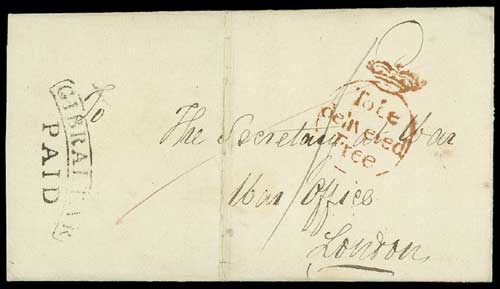 GIBRALTAR
PAID
To
The Secretary at War
War Office
London
To be
delivered
Free